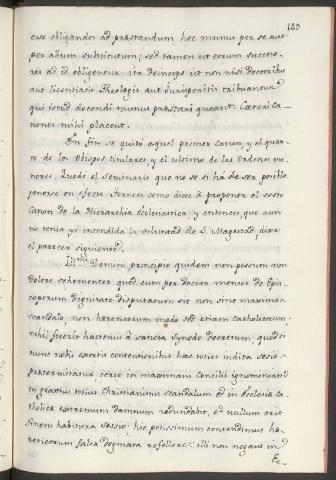 123
esse obligandos ad præstandum hoc munus per se aut
per alium substitutum; sed tamen ut eorum succeso-
res ad id obligentur ita deinceps ut non nisi Doctoribus
aut licentiatis Theologis aut Jurisperitis tribuantur
qui istud docendi munus præstare queant. Cæteri Ca-
nones mihi placent.
En fin se quitó aquel primer canon, y el quar-
to de los Obispos titulares y el ultimo de las Ordenes me-
nores. Quedó el Seminario que no se si há de ser posible
ponerse en efeto. Tornose como dixe à proponer el sesto
Canon de la Hierarchia Ecclesiastica, y entonces, que aun
no tenia yo entendida la voluntad de S. Magestad, dixe
el parecer siguiente.
Ill.mi Domini principio quidem non possum non
dolere vehementer quod cum per decem menses de Epis-
coporum dignitate disputatum sit non sine maximo
scandalo, non hæreticorum modo sed etiam Catholicorum,
nihil fuerit hactenus à sancta Synodo decretum, quod si
nunc nobis exortis contentionibus hæc toties indita Sesio
prætermitatur, certe in maximam Concilii ignominiam
in gravius totius Christianismi scandalum et in Ecclesiæ Ca-
tholicæ extremum damnum redundabit, et nullum erit
finem habitura Sessio; hic potissimum contendimus hæ-
reticorum falsa dogmata refellere: illi non negant in
Ec-